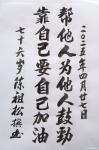 二〇二五年四月廿七日
帮他人为他人鼓劲
靠自己要自己加油
七十六岁陈祖松撰